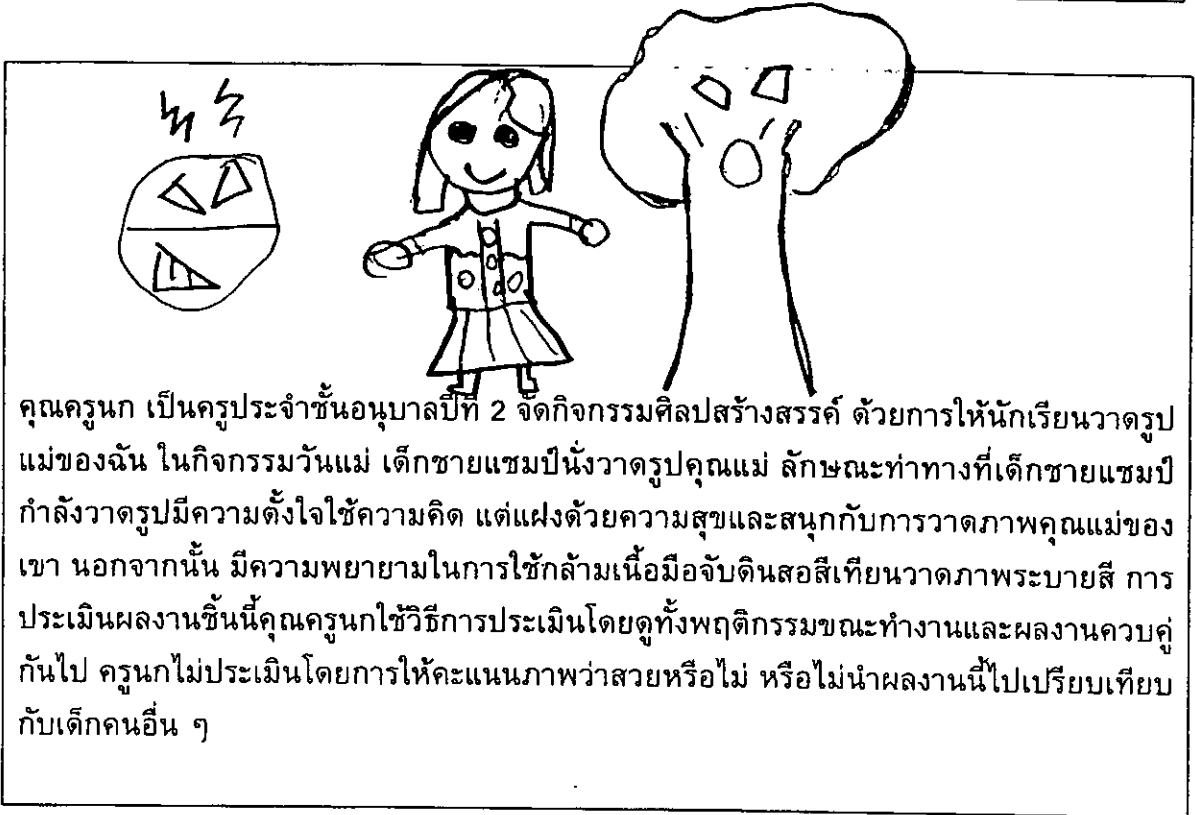 คุณครูนก เป็นครูประจำชั้นอนุบาลปีที่ 2 จัดกิจกรรมศิลปสร้างสรรค์ ด้วยการให้นักเรียนวาดรูป
แม่ของฉัน ในกิจกรรมวันแม่ เด็กชายแชมป์นั่งวาดรูปคุณแม่ ลักษณะท่าทางที่เด็กชายแชมป์
กำลังวาดรูปมีความตั้งใจใช้ความคิด แต่แฝงด้วยความสุขและสนุกกับการวาดภาพคุณแม่ของ
เขา นอกจากนั้น มีความพยายามในการใช้กล้ามเนื้อมือจับดินสอสีเทียนวาดภาพระบายสี การ
ประเมินผลงานชิ้นนี้คุณครูนกใช้วิธีการประเมินโดยดูทั้งพฤติกรรมขณะทำงานและผลงานควบคู่
กันไป ครูนกไม่ประเมินโดยการให้คะแนนภาพว่าสวยหรือไม่ หรือไม่นำผลงานนี้ไปเปรียบเทียบ
กับเด็กคนอื่น ๆ